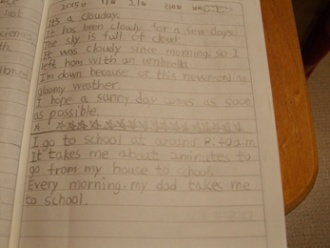 It's a cloudy.
It has been cloudy for a few days.
The sky is full of cloud.
It was cloudy since morning, so I
left home with an umbrella.
I'm down because of this never-ending
gloomy weather.
I hope a sunny day comes as soon
as possible.
I go to school at around
It takes me about 2 minutes to
go from my house to school.
Every morning, my dad takes me
to school.